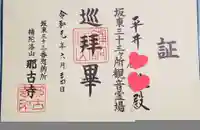 証
平井
殿
坂東三十三ヶ所観音霊場
巡拝畢
令和元年六月
坂東三十三番結願所
補陀落山 那古寺